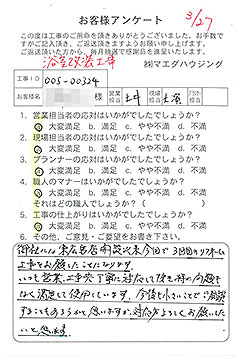 お客様アンケート
3/27
この度は工事のご用命を頂きありがとうございました。お手数で
すがご記入頂き、ご返送頂きますようお願い申し上げます。
ご返送頂いた方から、毎月抽選で感謝品を進呈いたします。
浴室改装工事
㈱マエダハウジング
工事ID 005-00324
お客様名 様 営業担当 現場担当
1. 営業担当者の応対はいかがでしたでしょうか?
a. 大変満足 b. 満足 c. やや不満 d. 不満
2. 現場担当者の応対はいかがでしたでしょうか?
a. 大変満足 b. 満足 c. やや不満 d. 不満
3. プランナーの応対はいかがでしたでしょうか?
a. 大変満足 b. 満足 c. やや不満 d. 不満
4. 職人のマナーはいかがでしたでしょうか?
a. 大変満足 b. 満足 c. やや不満 d. 不満
それはどの職人でしょうか? ( )
5. 工事の仕上がりはいかがでしたでしょうか?
a. 大変満足 b. 満足 c. やや不満 d. 不満
6. その他、ご意見・ご要望をお書き下さい。
御社には東広島店開設以来今回で3回目のリフォーム
工事をお願いしたことになります。
いつも営業、工事共丁寧に対応して頂き何の問題も
なく満足して使用しています。今後も小さいことで御相談
することもあろうかと思いますが対応よろしくお願いした
いと思います。